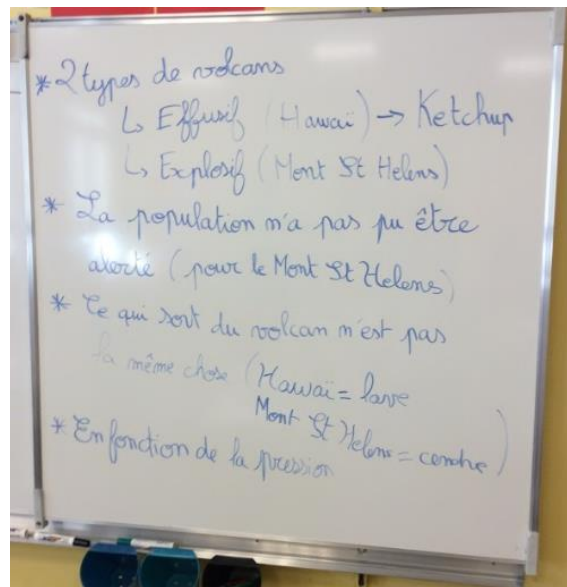 * 2 types de volcans
↳ Effusif (Hawaï) → Ketchup
↳ Explosif (Mont St Helens)
* La population n'a pas pu être
alerté (pour le Mont St Helens)
* Ce qui sort du volcan n'est pas
la même chose (Hawaï = lave
Mont St Helens = cendre)
* En fonction de la pression